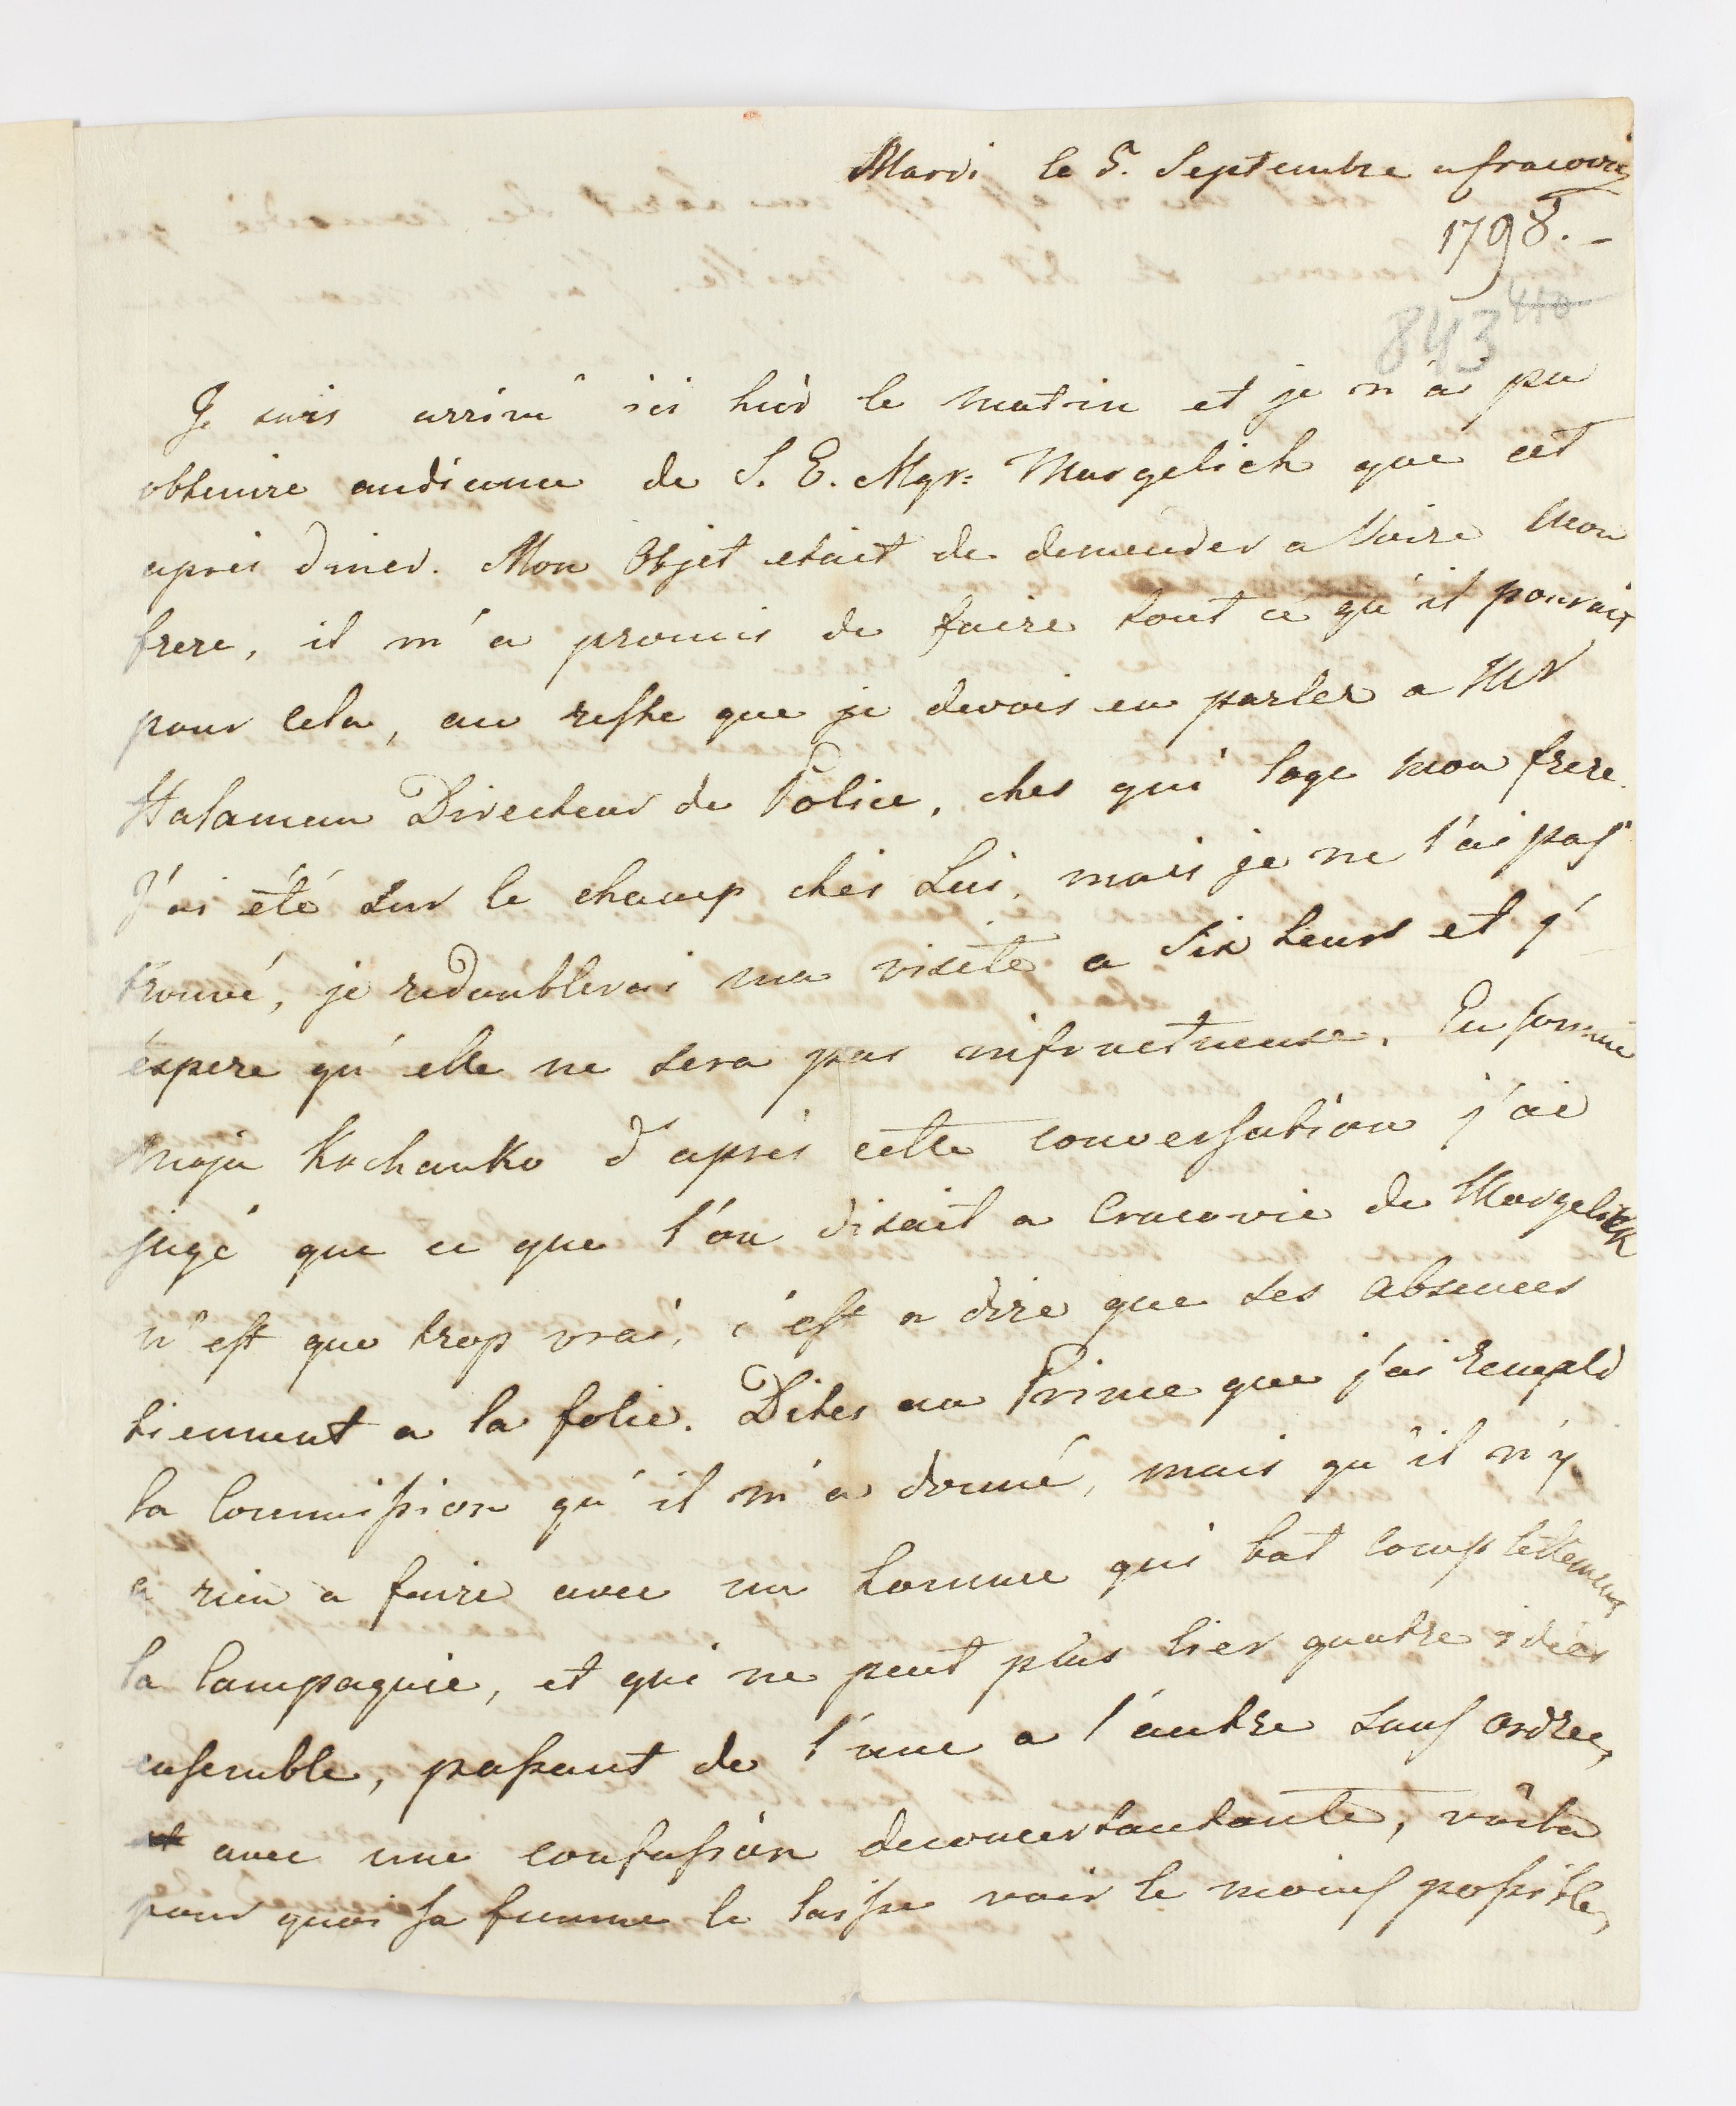 Mardi le 5. Septembre a Cracovie
1798. –
843 410
Je suis arrivé ici hier le matin et je n'ai pu
obtenire audience de S. E. Mgr: Margelick que cet
aprés diner. Mon Objet etait de demender a Voire mon
frere, il m'a promis de faire tout ce qu'il pouvait
pour cela, au reste que je devois en parler a Mr
Halaman Directeur de Police, ches qui loge mon frere.
J'ai été sur le champ chés Lui, mais je ne l'ai pas
trouvé, je redoublerai ma visite a Six heurs et j'
éspere qu'elle ne sera pas infructueuse. En somme
moja Kochanko d'aprés cette conversation j'ai
jugé que ce que l'on disait a Cracovie de Margelick
n'est que trop vrai, c'est a dire que ses absences
tiennent a la folie. Dites au Prince que j'ai rempli
la Commission qu'il m'a donné, mais qu'il n'y
a rien a faire avec un homme qui bat complettement
la Campagnie, et qui ne peut plus lier quatre idées
ensemble, passant de l'une a l'autre sans ordre,
et avec une confusion deconcertantante, voila
pour quoi sa femme le laisse voir le moins possible,